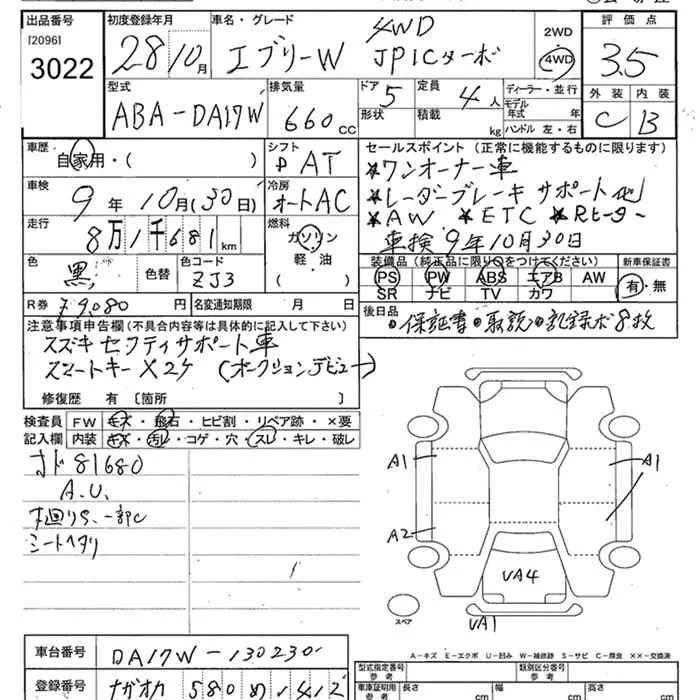 出品番号
[2096]
3022
初度登録年月
28/10月
車名・グレード
エブリーW
4WD
JPICターボ
2WD
4WD
評価点
3.5
外装 内装
C B
型式
ABA-DA17W
排気量
660 cc
ドア 5
形状
定員 4人
積載 kg
ディーラー・並行
モデル年式 年式
ハンドル 左・右
車歴
自家用・( )
シフト
P AT
セールスポイント (正常に機能するものに限ります)
*ワンオーナー車
*レーダーブレーキサポート他
*AW *ETC *Rヒーター
車検9年10月30日
車検
9年10月(30日)
冷房
オートAC
走行
8万1千681km
燃料
ガソリン
軽油
( )
色
黒
色替
色コード
ZJ3
装備品 (純正品に限り○をつけてください)
PS PW ABS エアB AW
SR ナビ TV カワ
新車保証書
有・無
R券 ¥9,080 円
名変通知期限 月 日
後日品
・保証書・取説・記録ボ8枚
注意事項申告欄(不具合内容等は具体的に記入して下さい)
スズキセーフティサポート車
スマートキー×2ケ (オークションデビュー)
修復歴 有〔箇所 〕
検査員記入欄
FW キズ・飛石・ヒビ割・リペア跡・×要
内装 キズ・汚レ・コゲ・穴・スレ・キレ・破レ
81680
A.U.
下廻りS、一部C
シートヘタリ
A1
A1
A2
UA4
UA1
スペア
A-キズ E-エクボ U-凹み W-補修跡 S-サビ C-腐食 XX-交換済
車台番号
DA17W-130230
登録番号
ナガオカ 580 め・412
型式指定番号
参考
類別区分番号
参考
車庫証明用
参考
長さ cm
幅 cm
高さ cm